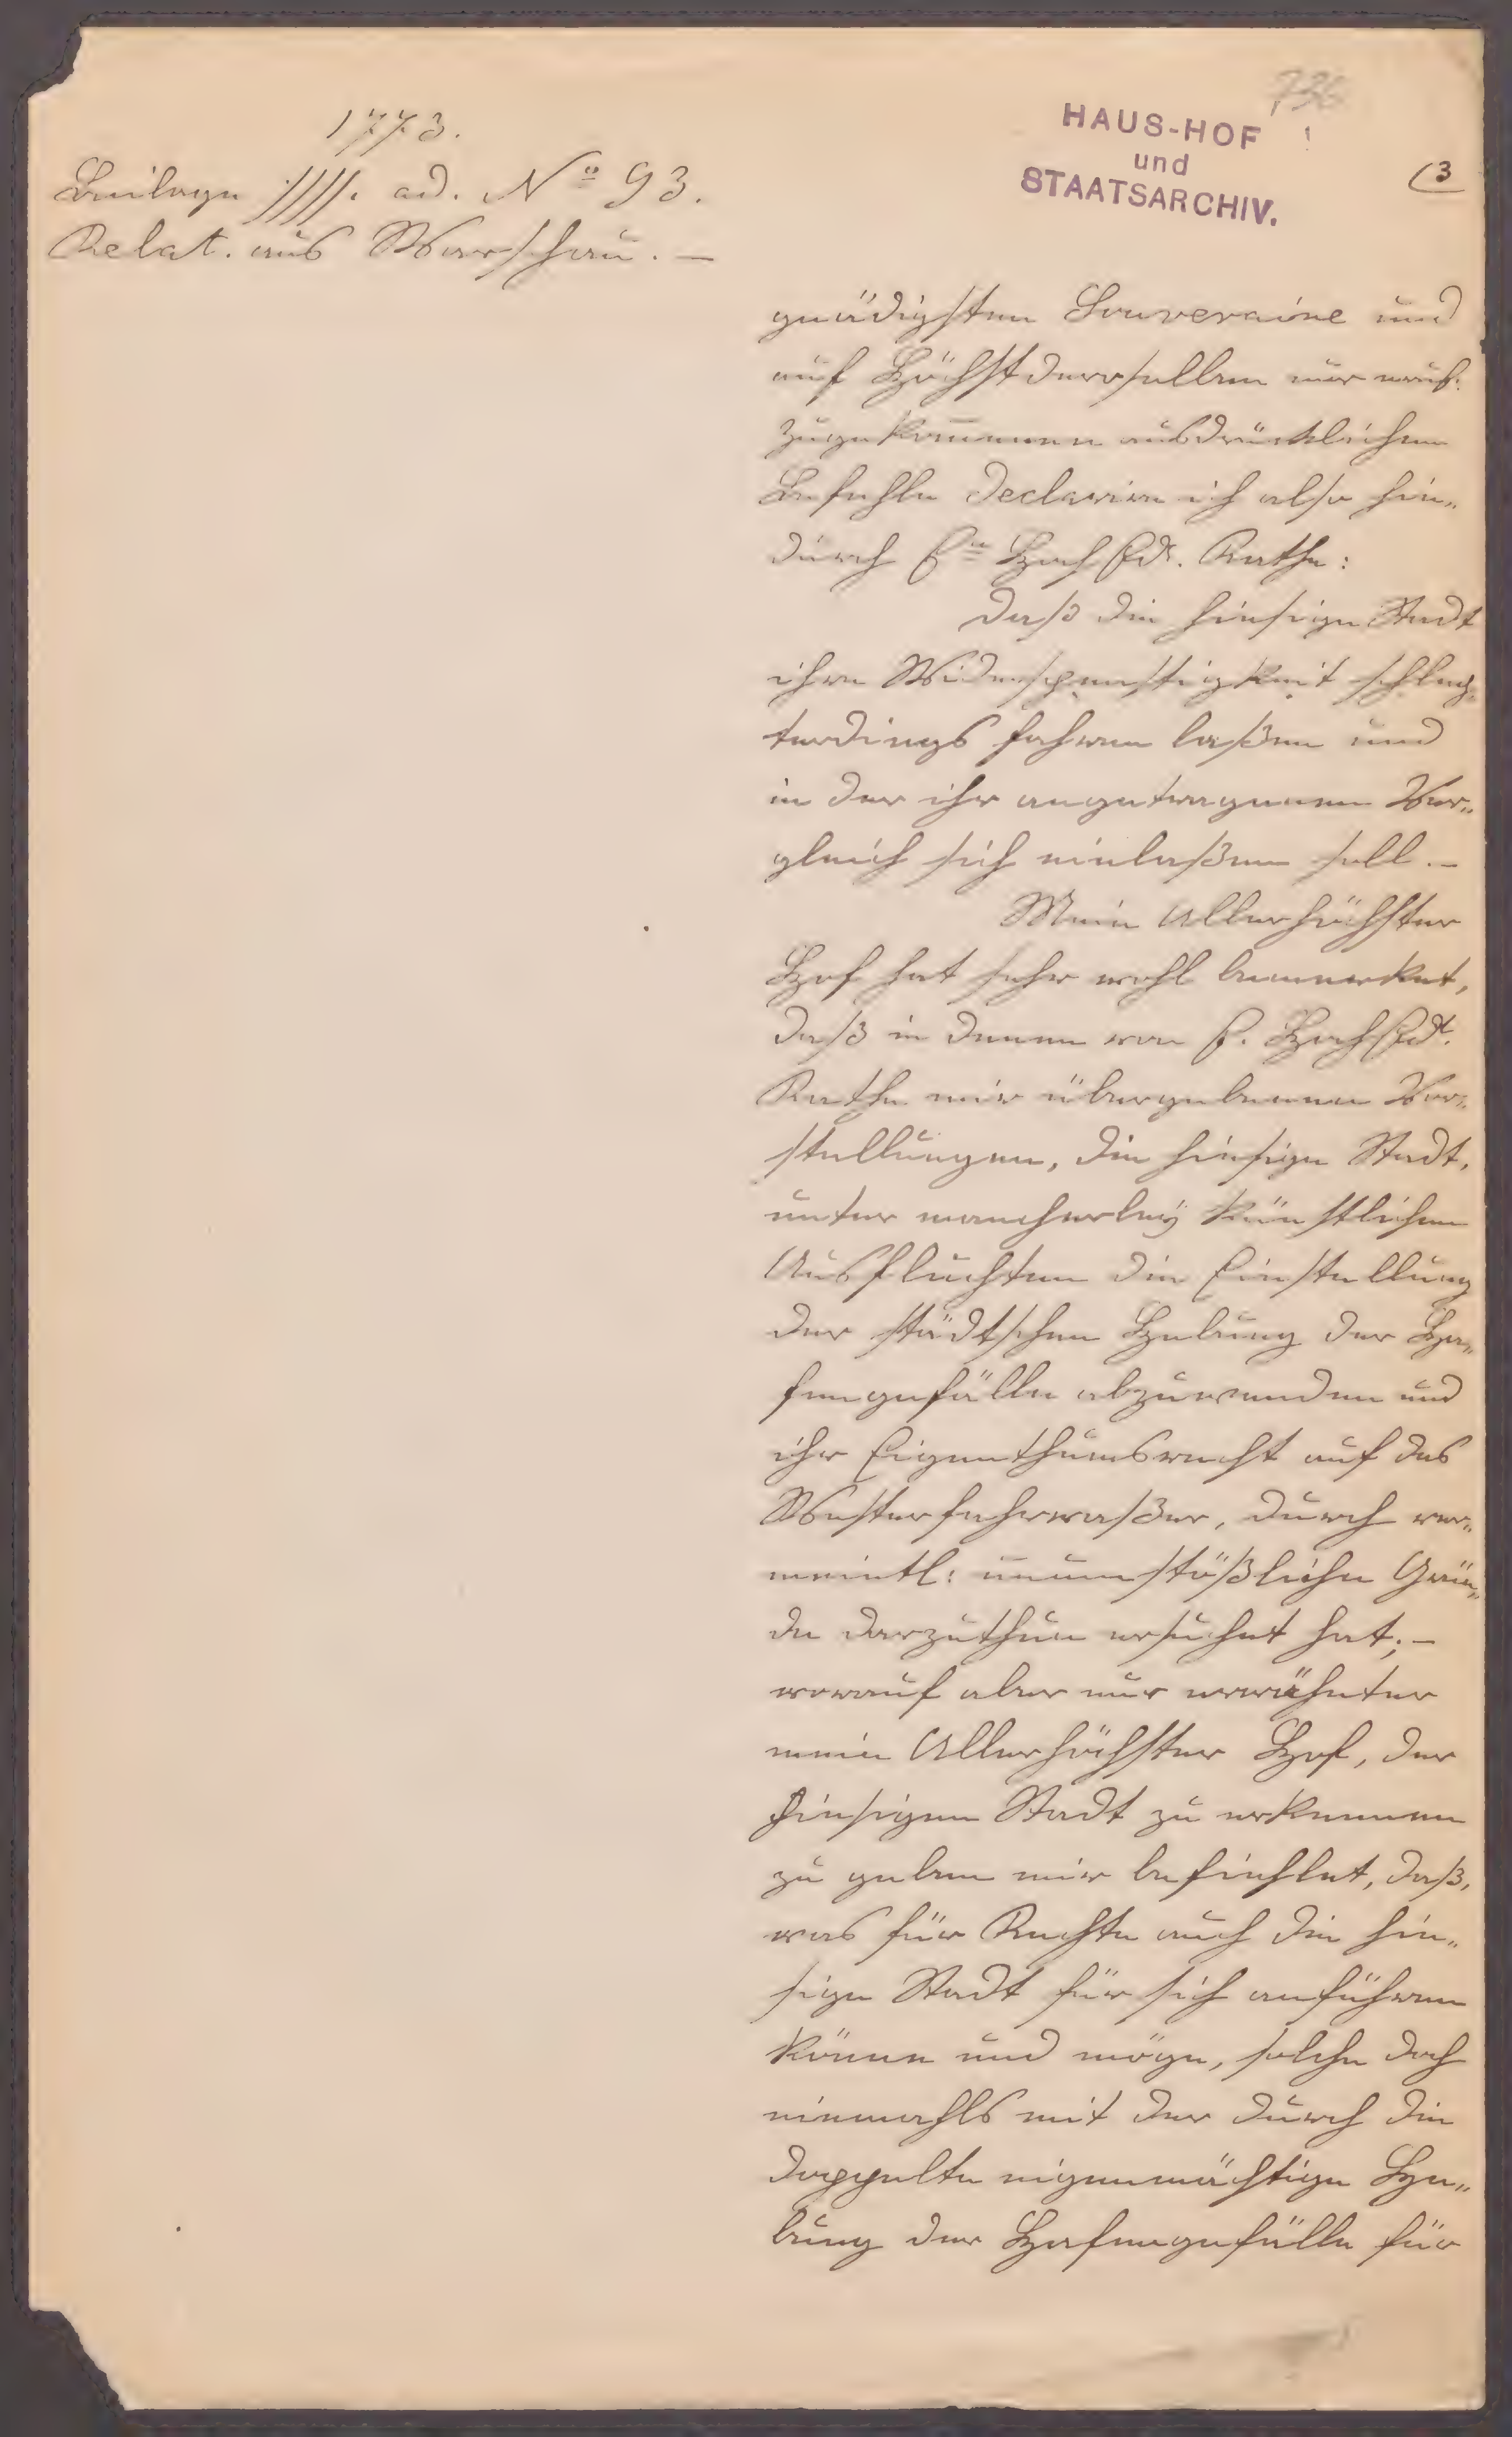 736
1773.
HAUS-HOF
und
STAATSARCHIV.
(3
Beilage //// . ad. No 93.
Relat. aus Warschau. —
gnädigsten Souveraine und
auf Höchstderoselben mir
zugekommenen ausdrücklichen
Befehle declarire ich also hie„
durch En Hoch Edl. Rathe:
daß die hiesige Stadt
ihre Widerspenstigkeit schlech„
terdings fahren laßen und
in der ihr angetragenen Ver„
gleich sich einlaßen soll. —
Mein Allerhöchster
Hof hat sehr wohl bemerket,
daß in denen von E. Hoch Edl.
Rathe mir übergebenen Vor„
stellungen, die hiesige Stadt,
unter mancherleÿ künstlichen
Ausfluchten die Einstellung
der städtschen Hebung der Ha„
fengefälle abzuwenden und
ihr Eigenthumsrecht auf das
Westerfahrwaßer, durch ver„
meintl: unumstößliche Grün„
de darzuthun ersuchet hat; —
worauf aber nur erwähnter
mein Allerhöchster Hof, der
hiesigen Stadt zu erkennen
zu geben mir befiehlet, daß,
was für Rechte auch die hie„
sige Stadt für sich anführen
könne und möge, solche doch
niemahls mit der durch die
doppelte eigenmächtige He„
bung der Hafengefälle für